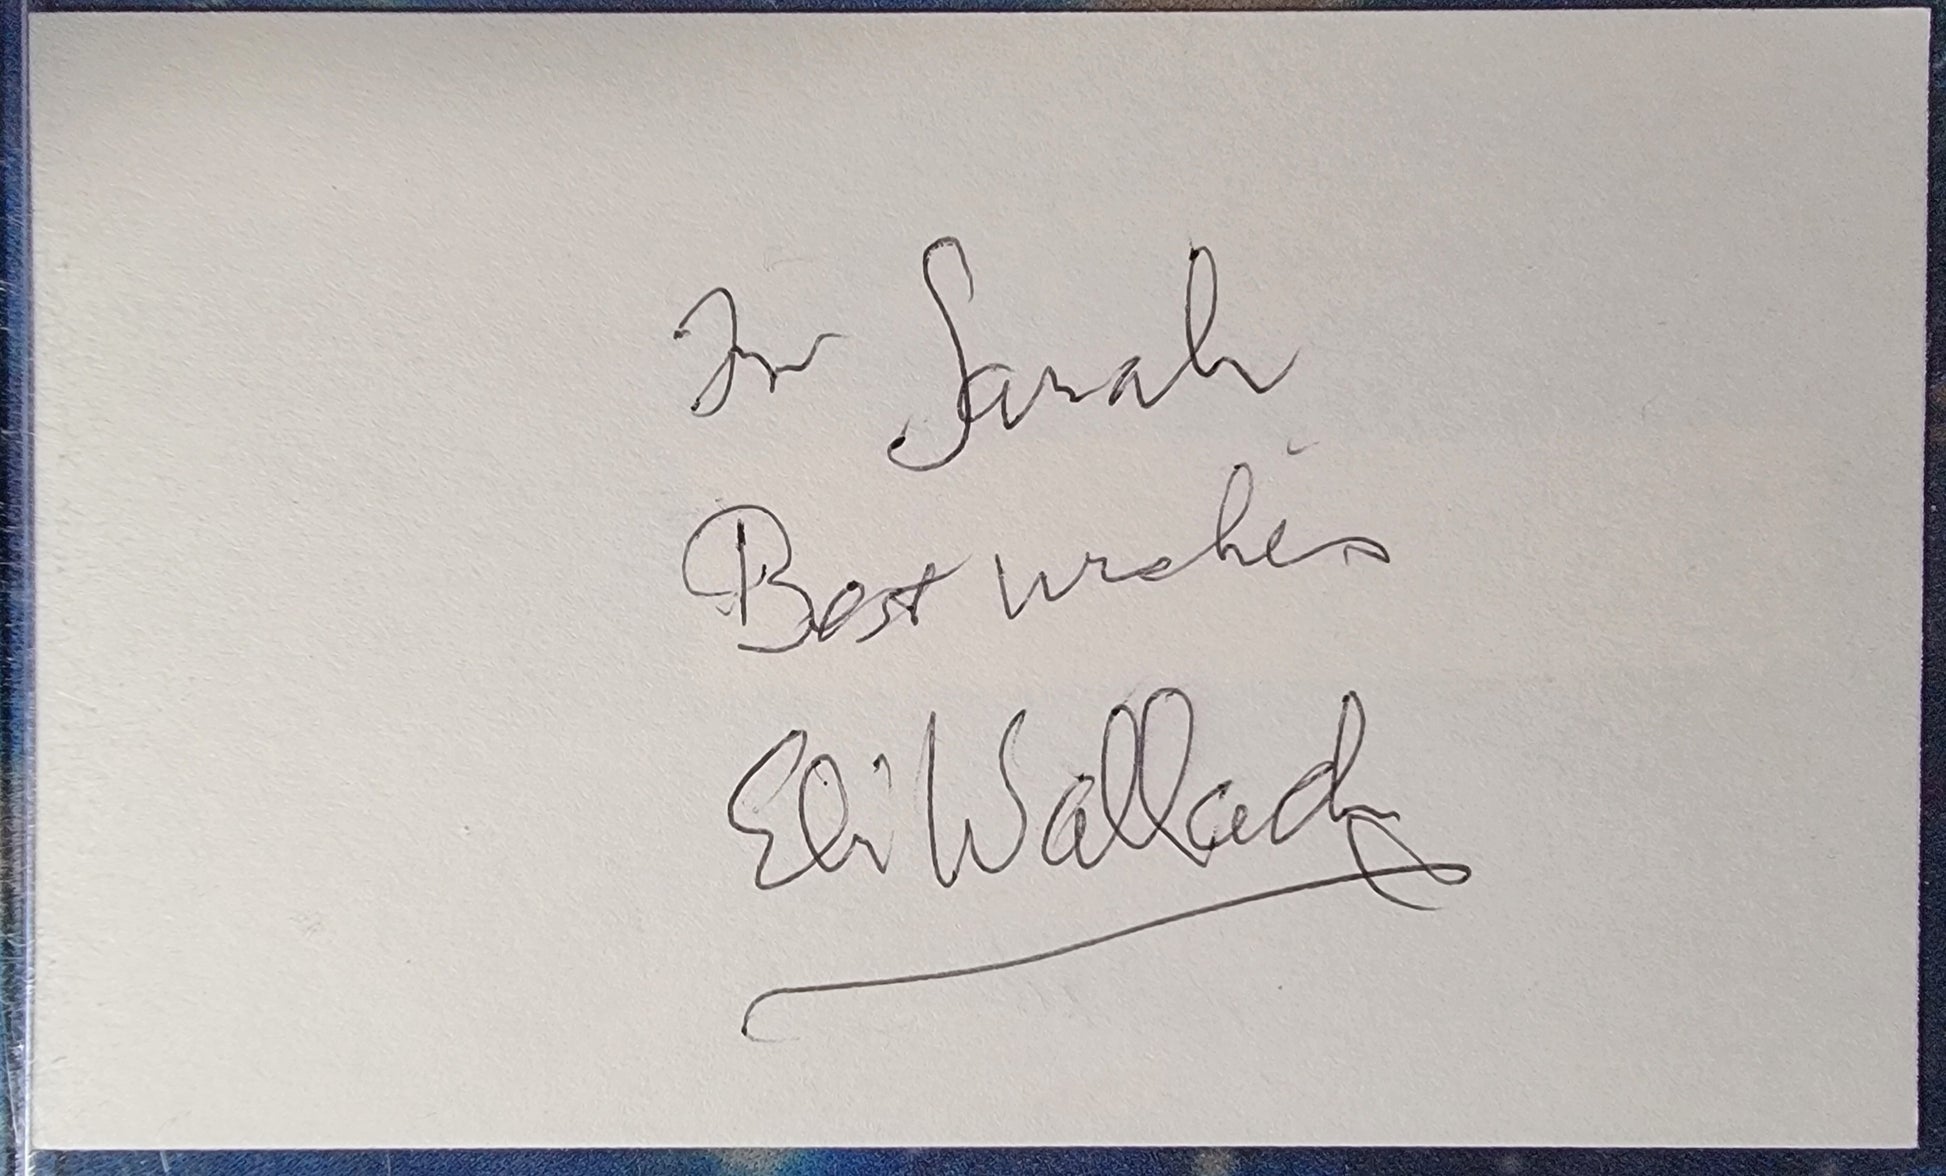 For Sarah
Best wishes
Eli Wallach